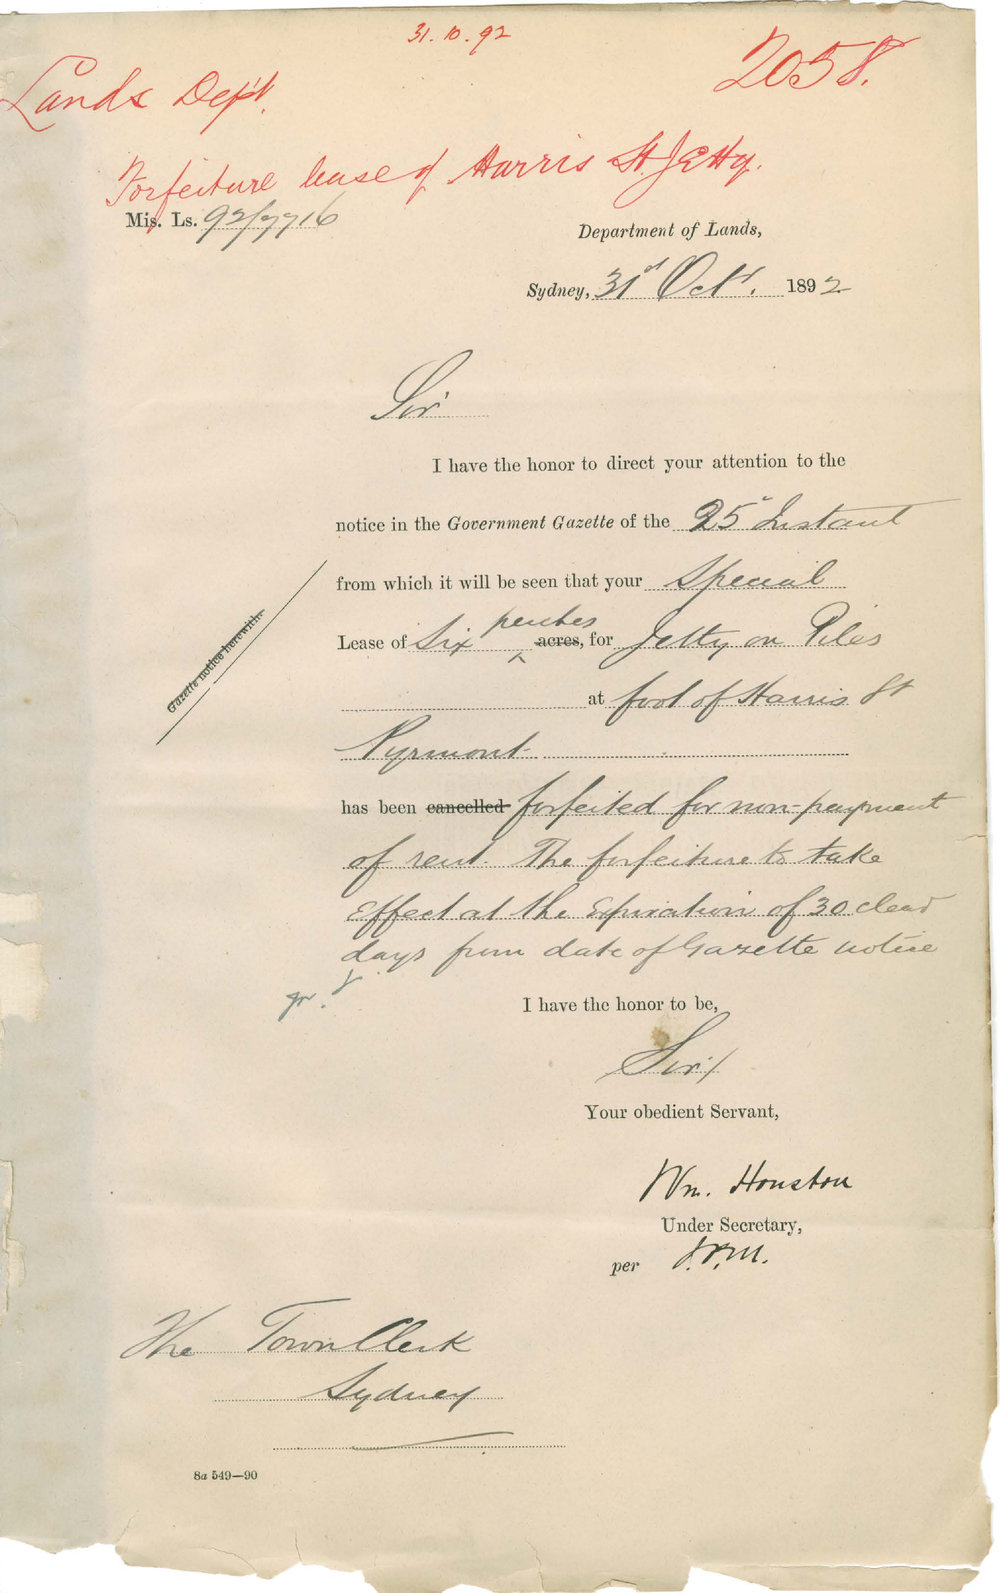 31.10.92
2058.
Lands Dept.
Forfeiture lease of Harris St. Jetty.
Mis. Ls. 92/7716
Department of Lands,
Sydney, 31st Oct. 1892
Sir
I have the honor to direct your attention to the
notice in the Government Gazette of the 25 Instant
from which it will be seen that your Special
Gazette notice herewith.
Lease of Six perches acres, for Jetty on Piles
at foot of Harris St
Pyrmont
has been cancelled forfeited for non-payment
of rent. The forfeiture to take
Effect at the Expiration of 30 clear
days from date of Gazette notice
I have the honor to be,
Sir
Your obedient Servant,
Wm. Houston
Under Secretary,
per
The Town Clerk
Sydney
8a 549—90